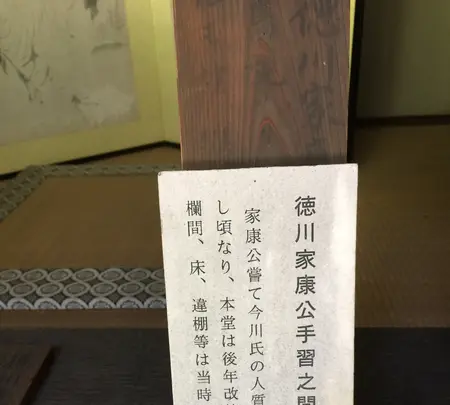 川家
徳川家康公手習之間
家康公嘗て今川氏の人質
し頃なり、本堂は後年改
欄間、床、違棚等は当時